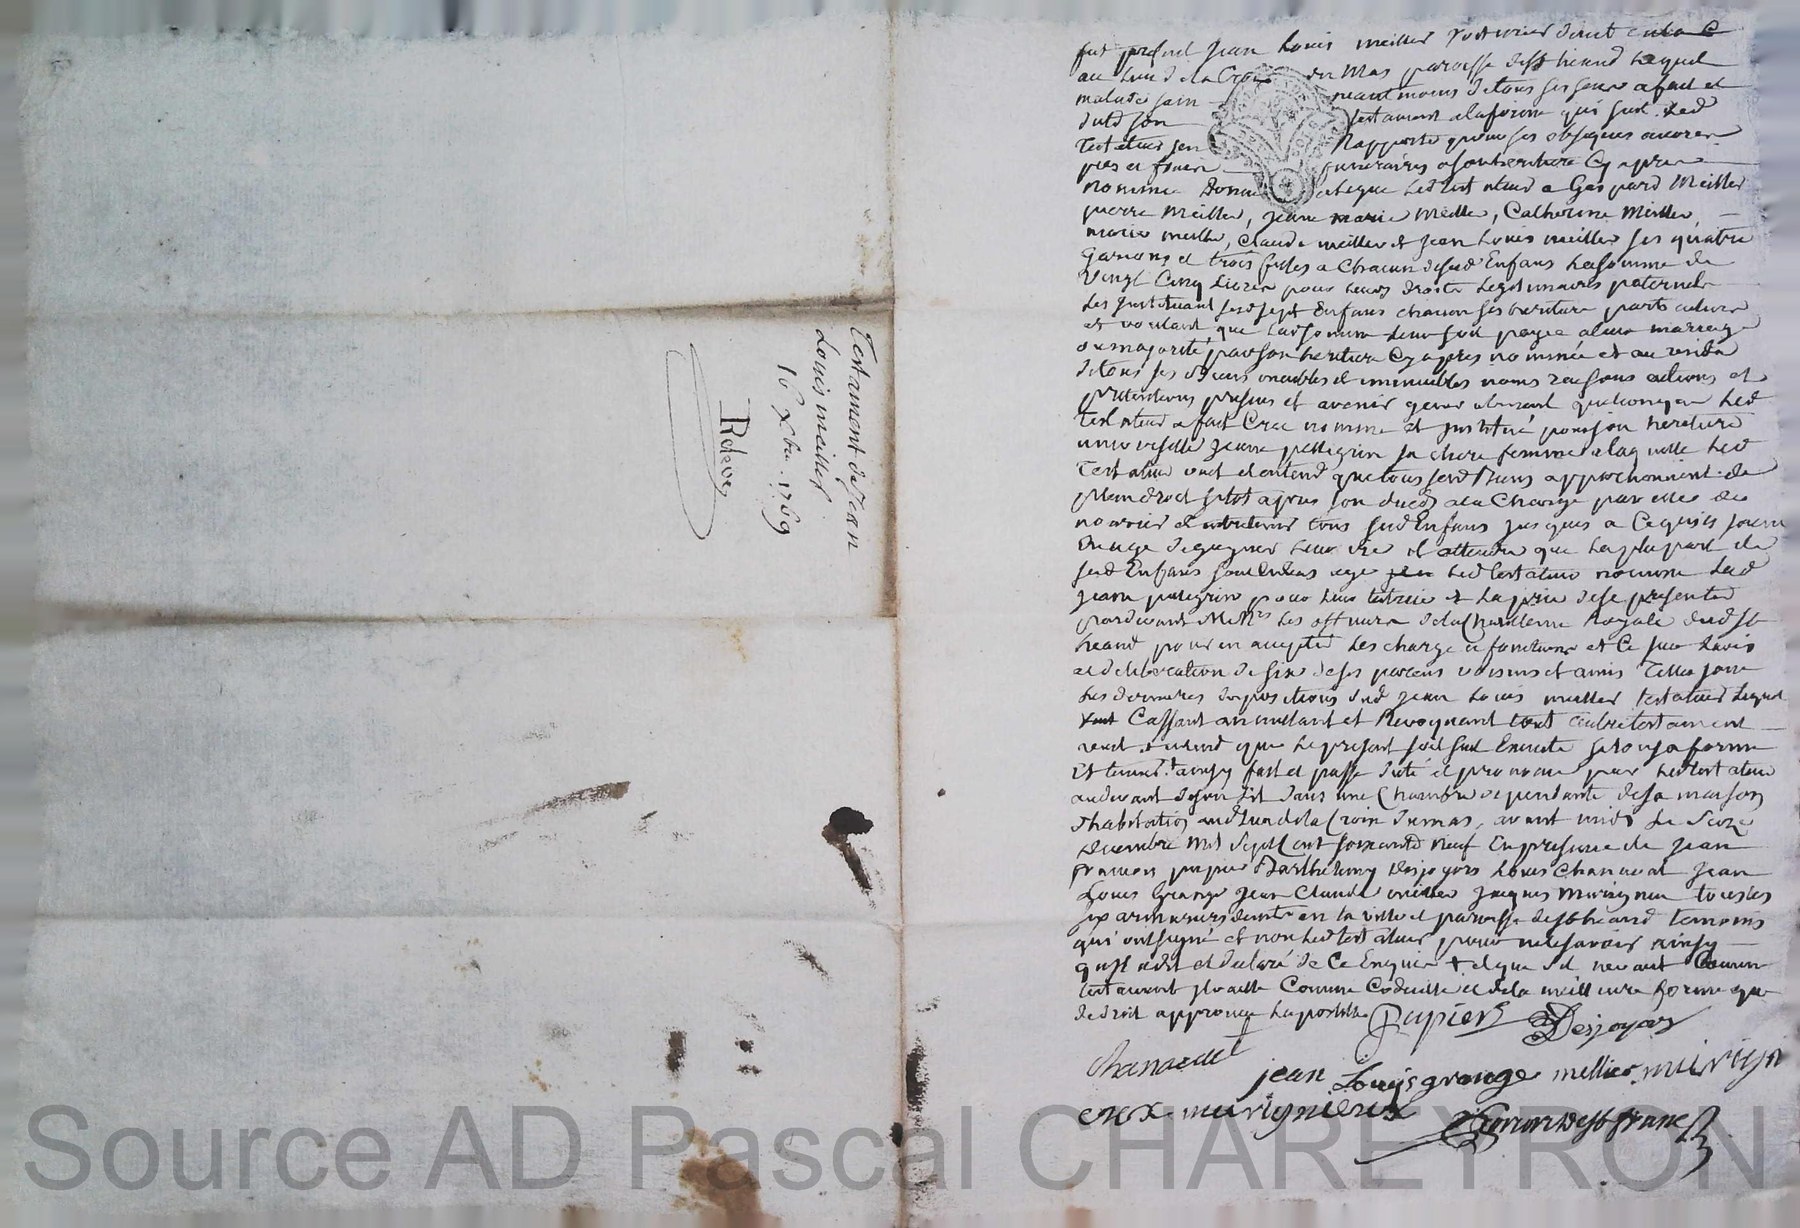 Testament de Jean
Louis meiller
16 Xbre. 1769
fut présent Jean Louis meiller
au lieu de la Croix du Mas paroisse de St heand lequel
malade sain neantmoins de tous ses sens a fait et
dicté son testament a la forme qui suit. led
Testateur rapporte pour ses obseques
funeraires a son heritiere Cy apres
nommée Donne et legue led testateur a Gaspard Meiller
pierre Meiller, Jeane marie Meiller, Catherine Meiller,
marie meiller, Claude meiller et Jean Louis meiller ses quatre
garçons et trois filles a Chacun desd Enfans la somme de
Vingt Cinq Livres pour leurs droits legitimaires paternels
Les instituant sesd sept Enfans chacun ses heritiers particuliers
et voulant que lad somme leur soit payée a leur marriage
ou majorité par son heritiere Cy apres nommée et au residu
de tous ses Biens meubles et immeubles noms raisons actions et
pretentions presens et avenir generalement quelconques led
testateur a fait Cree nommé et institué pour son heritiere
universelle Jeane pellegrin sa chere femme a laquelle led
Testateur veut et entend que tous sesd Biens appartiennent de
plein droit sitot apres son deces a la Charge par elle de
nourrir et entretenir tous sesd Enfans jusques a Ce quils soient
En age de gagner leur vie et attendu que la plupart de
sesd Enfans sont En bas age led testateur nomme lad
Jeane pelegrin pour leur tutrice et la prie de se presenter
pardevant MeSrs les officiers de la Chatellenie Royale dud St
heand pour en accepter les charge et fonctions et Ce sur lavis
et deliberation de six de ses parens voisins et amis Telles sont
les dernieres dispositions dud Jean Louis meiller testateur lequel
Cassant annullant et Revoquant tout autre testament
veut et entend que le present soit seul Execute selon sa forme
Et teneur. ainsy fait et passé dicté et prononcé par led testateur
audevant de son lit dans une Chambre dependante de sa maison
d'habitation aud lieu de la Croix du mas, avant midy le Seize
decembre mil sept Cent soixante neuf En presence de Jean
françois papier Barthelemy Desjoyaux Louis Chanavat Jean
Louis Grange Jean Claude meiller Jacques Murigneu tous les
six armuriers demts en la ville et paroisse de St heand temoins
qui ont signé et non led testateur pour ne le savoir ainsy
quil a dit et declaré de Ce Enquis + et que sil ne vaut Comme
testament il vaille Comme Codicille et de la meilleure forme que
de droit approuvé la postille Papier Desjoyaux
Chanavat
jean Louis grange mellier
murignieux
Source AD Pascal CHAREYRON